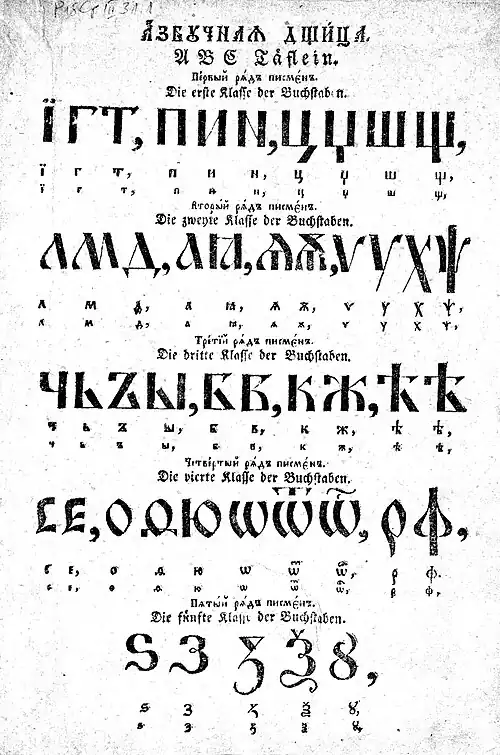 А҆ЗБꙊЧНАѦ ДЩИ́ЦА.
A B C Täflein.
Пе́рвый рѧ́дъ писме́нъ.
Die erste Klasse der Buchstaben.
Ї Г Т, П И N, Ц Џ Ш Щ,
ї г т, п и н, ц џ ш щ,
ї г т, п и н, ц џ ш щ,
Вторы́й рѧ́дъ писме́нъ.
Die zweyte Klasse der Buchstaben.
Л М Д, А Ꙗ, Ѧ Ѫ, Ѵ У Х Ѱ
л м д, а ꙗ, ѧ ѫ, ѵ у х ѱ,
л м д, а ꙗ, ѧ ѫ, ѵ у х ѱ,
Тре́тїй рѧ́дъ писме́нъ.
Die dritte Klasse der Buchstaben.
Ч Ь Ъ Ы, Б В, К Ж, Ѣ Ѣ
ч ь ъ ы, б в, к ж, ѣ ѣ,
ч ь ъ ы, б в, к ж, ѣ ѣ,
Четве́ртый рѧ́дъ писме́нъ.
Die vierte Klasse der Buchstaben.
Є Е, О Ѳ Ю Ѡ Ѿ Ѽ, Р Ф,
є е, о ѳ ю ѡ ѿ ѽ, р ф.
є е, о ѳ ю ѡ ѿ ѽ, р ф,
Пѧ́тый рѧ́дъ писме́нъ.
Die fünfte Klasse der Buchstaben.
Ѕ З Ꙁ Ѯ Ꙋ,
ѕ з ꙁ ѯ ꙋ,
ѕ з ꙁ ѯ ꙋ,